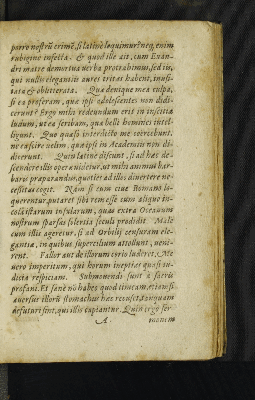 porro nostrũ crimẽ, si latinè loquimur? neq, enim
rubigine infecta. & quod ille ait, cum Euan-
dri matre demortua verba protrahimus, sed iis,
qui nullis elegantiis aures tritas habent, inusi-
tata & obliterata. Quæ denique mea culpa,
si ea proferam, quæ ipsi adolescentes non didi-
cerunt? Ergo mihi redeundum erit in inscitiæ
ludum, ut ea scribam, quæ belli homines intel-
ligant. Quo quaso interdicto me coërcebunt,
ne ruscire velim, quæ ipsi in Academiis non di-
dicerunt. Quin latinè discunt, si ad has de-
scendere illis operæ videtur, ut mihi animus bar-
barus præparandus, quoties ad illos divertere ne-
cessitas cogit. Nam si cum cive Romano lo-
querentur, putaret sibi rem esse cum aliquo in-
colà istarum insularum, quas extra Oceanum
nostrum sparsas solertia seculi prodidit. Male
cum illis ageretur, si ad Orbilij censuram ele-
gantiæ, in quibus supercilium attollunt, veni-
rent. Fallor aut de illorum corio luderet. Me
vero imperitum, qui horum ineptias quasi iu-
dicia respiciam. Submovendi sunt à sacris
profani. Et sanè no habes quod timeam, etiam si
aversus illorũ stomachus has recuset, tanquam
defuturi sint, qui illis cupiantur. Quin ergo fer-
A. rorum